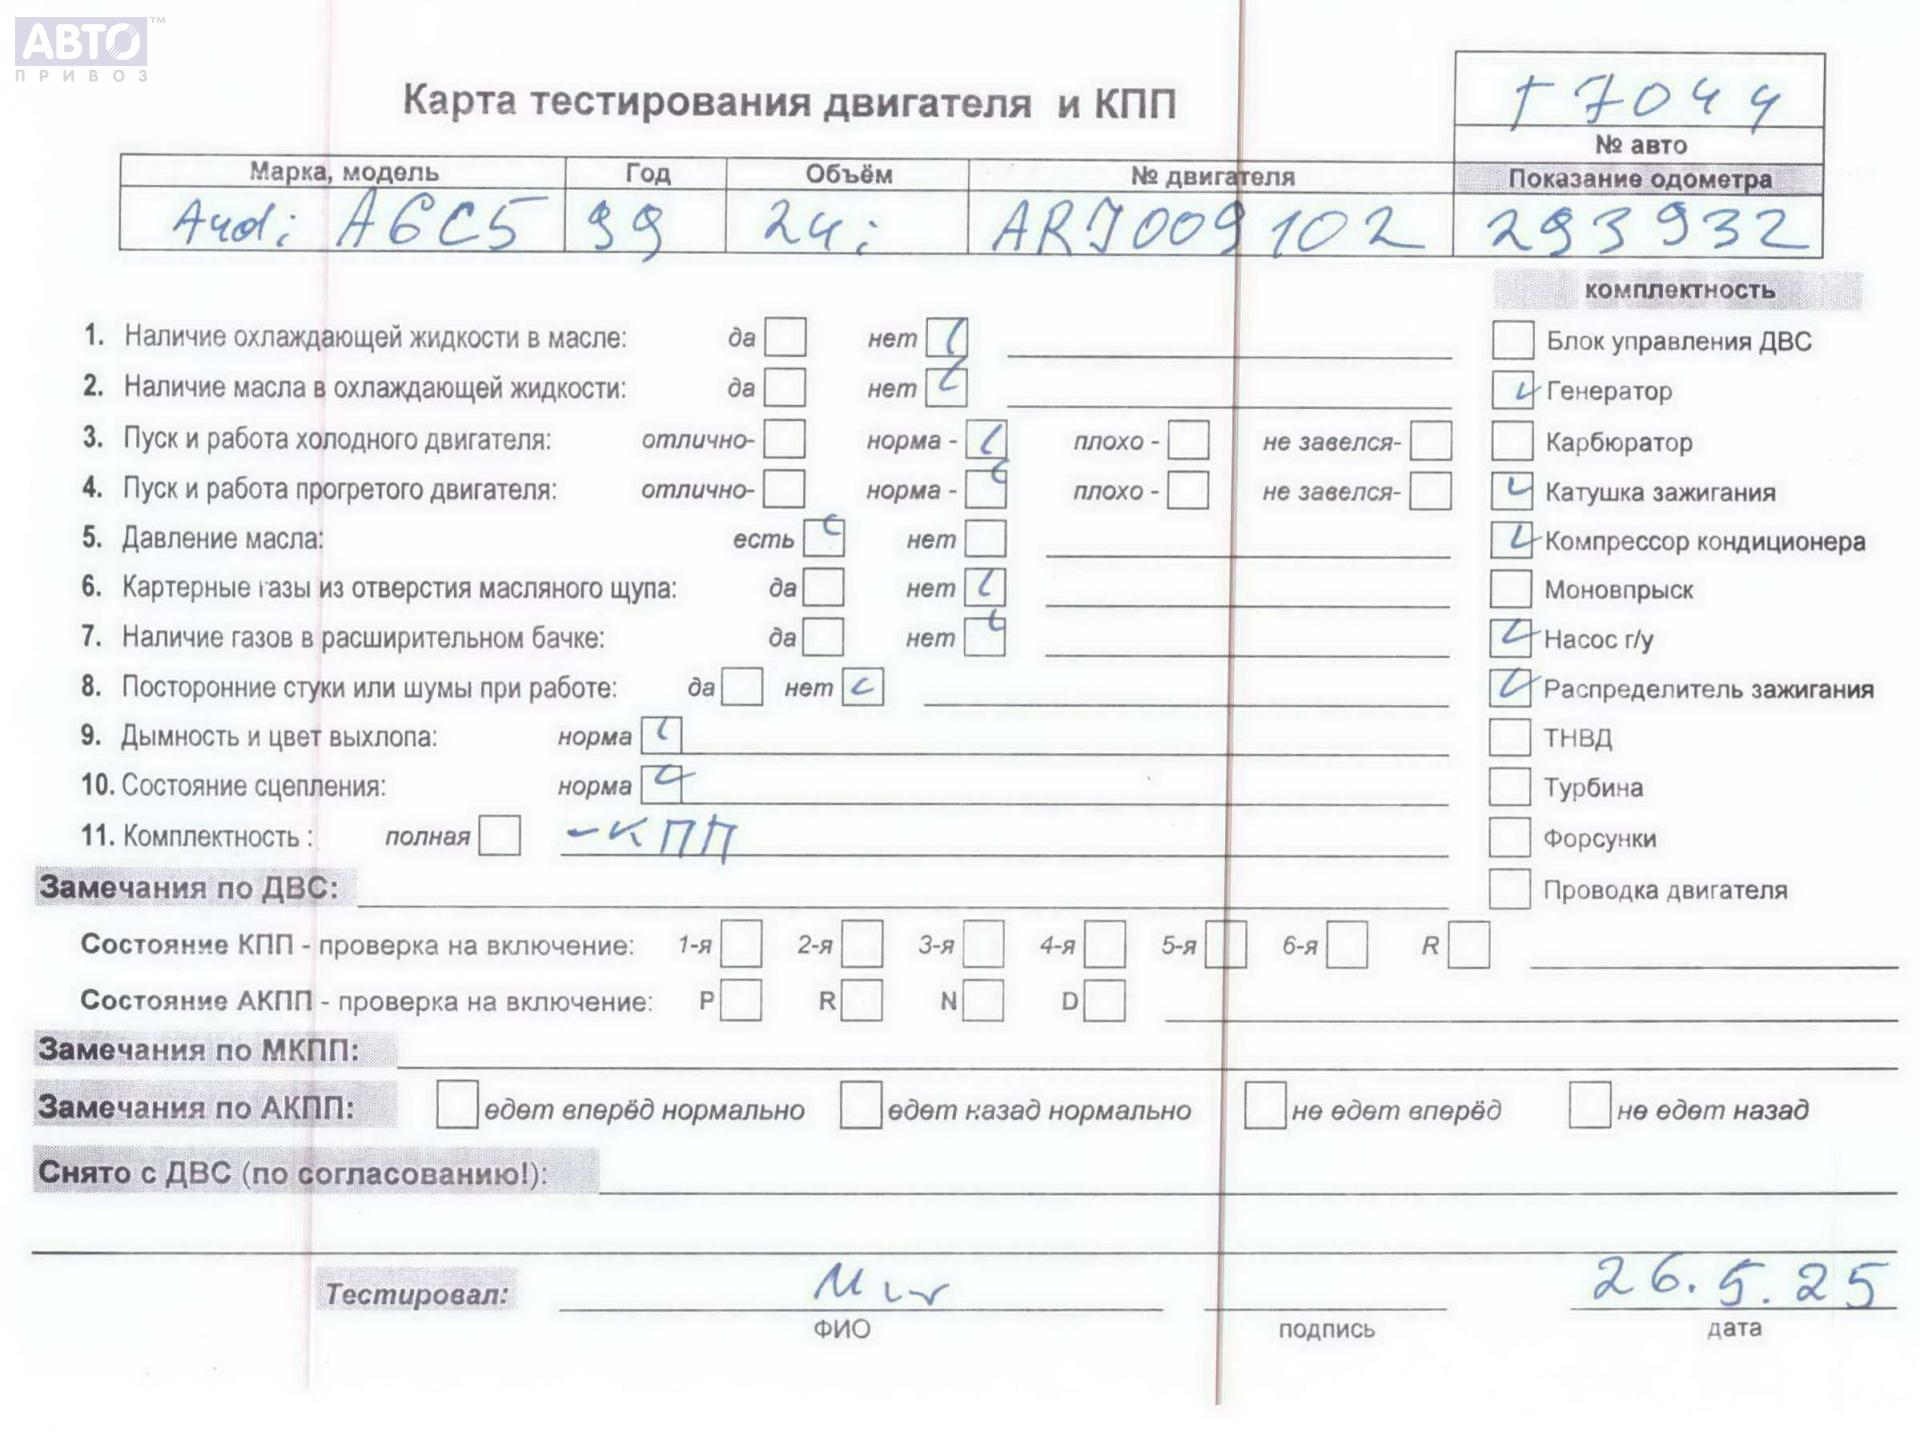 АВТО™
ПРИВОЗ
Карта тестирования двигателя и КПП
т 7044
№ авто
Марка, модель Год Объём № двигателя Показание одометра
Audi A6C5 99 24i ARJ009102 293932
комплектность
1. Наличие охлаждающей жидкости в масле: да нет
Блок управления ДВС
2. Наличие масла в охлаждающей жидкости: да нет
Генератор
3. Пуск и работа холодного двигателя: отлично- норма - плохо - не завелся-
Карбюратор
4. Пуск и работа прогретого двигателя: отлично- норма - плохо - не завелся-
Катушка зажигания
5. Давление масла: есть нет
Компрессор кондиционера
6. Картерные газы из отверстия масляного щупа: да нет
Моновпрыск
7. Наличие газов в расширительном бачке: да нет
Насос г/у
8. Посторонние стуки или шумы при работе: да нет
Распределитель зажигания
9. Дымность и цвет выхлопа: норма
ТНВД
10. Состояние сцепления: норма
Турбина
11. Комплектность : полная -КПП
Форсунки
Замечания по ДВС:
Проводка двигателя
Состояние КПП - проверка на включение: 1-я 2-я 3-я 4-я 5-я 6-я R
Состояние АКПП - проверка на включение: P R N D
Замечания по МКПП:
Замечания по АКПП: едет вперёд нормально едет назад нормально не едет вперёд не едет назад
Снято с ДВС (по согласованию!):
Тестировал: 26.5.25
ФИО подпись дата